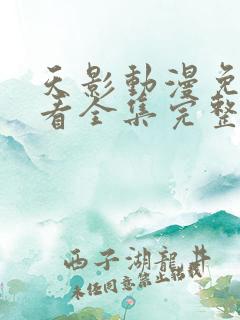 天影動漫免
看全集完整
西子湖龍井
未经同意禁止転載